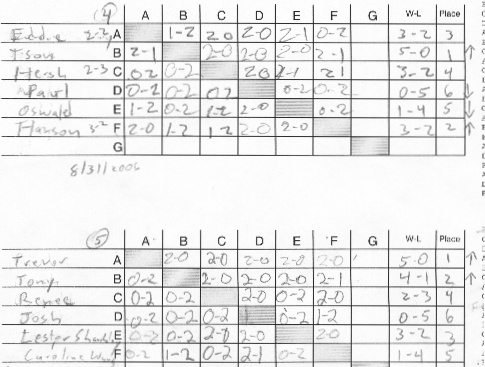 4 A B C D E F G W-L Place
Eddie 2-2 A 1-2 20 2-0 2-1 0-2 3-2 3
Tson B 2-1 2-0 2-0 2-0 2-1 5-0 1 ↑
Hersh 2-3 C 02 0-2 20 2-1 21 3-2 4
Paul D 0-2 0-2 02 0-2 0-2 0-5 6 ↓
Oswald E 1-2 0-2 1-2 2-0 0-2 1-4 5 ↓
Hanson 3-2 F 2-0 1-2 12 2-0 2-0 3-2 2 ↑
G
8/31/2006
5 A B C D E F G W-L Place
Trevor A 2-0 2-0 2-0 2-0 2-0 5-0 1 ↑
Tony B 0-2 2-0 2-0 2-0 2-1 4-1 2 ↑
Renee C 0-2 0-2 2-0 0-2 2-0 2-3 4
Josh D 0-2 0-2 0-2 0-2 1-2 0-5 6
Lester E 0-2 0-2 2-0 2-0 2-0 3-2 3
Caroline F 0-2 1-2 0-2 2-1 0-2 1-4 5